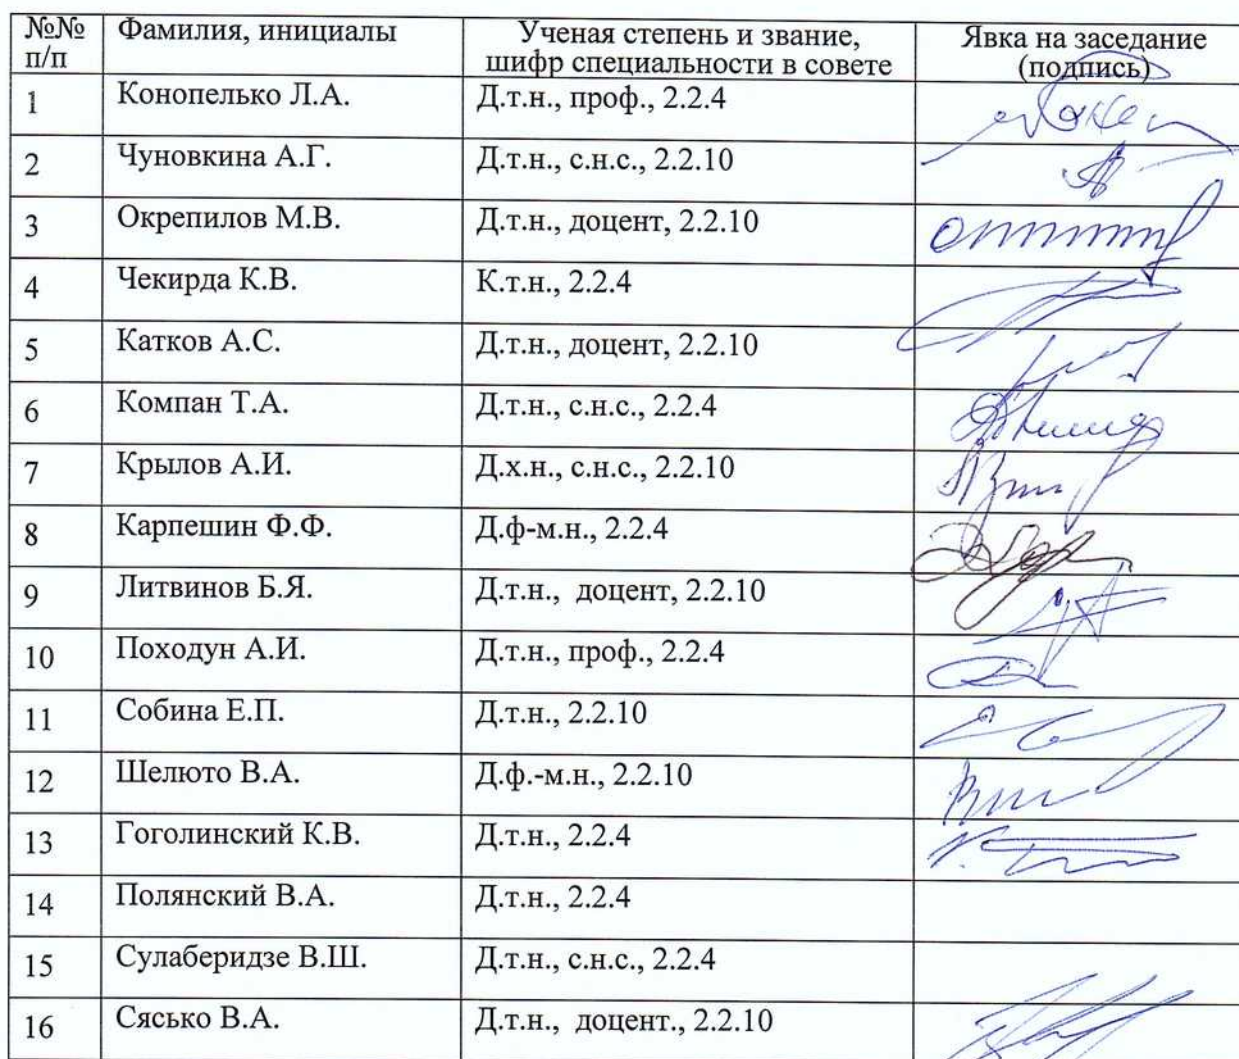 №№ Фамилия, инициалы Ученая степень и звание, Явка на заседание
п/п шифр специальности в совете (подпись)
1 Конопелько Л.А. Д.т.н., проф., 2.2.4
2 Чуновкина А.Г. Д.т.н., с.н.с., 2.2.10
3 Окрепилов М.В. Д.т.н., доцент, 2.2.10
4 Чекирда К.В. К.т.н., 2.2.4
5 Катков А.С. Д.т.н., доцент, 2.2.10
6 Компан Т.А. Д.т.н., с.н.с., 2.2.4
7 Крылов А.И. Д.х.н., с.н.с., 2.2.10
8 Карпешин Ф.Ф. Д.ф-м.н., 2.2.4
9 Литвинов Б.Я. Д.т.н., доцент, 2.2.10
10 Походун А.И. Д.т.н., проф., 2.2.4
11 Собина Е.П. Д.т.н., 2.2.10
12 Шелюто В.А. Д.ф.-м.н., 2.2.10
13 Гоголинский К.В. Д.т.н., 2.2.4
14 Полянский В.А. Д.т.н., 2.2.4
15 Сулаберидзе В.Ш. Д.т.н., с.н.с., 2.2.4
16 Сясько В.А. Д.т.н., доцент., 2.2.10